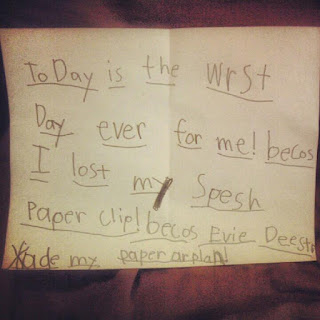 ToDay is the wrst
Day ever for me! becos
I lost my Spesh
Paper clip! becos Evie Deestr
Xade my paper arplan!